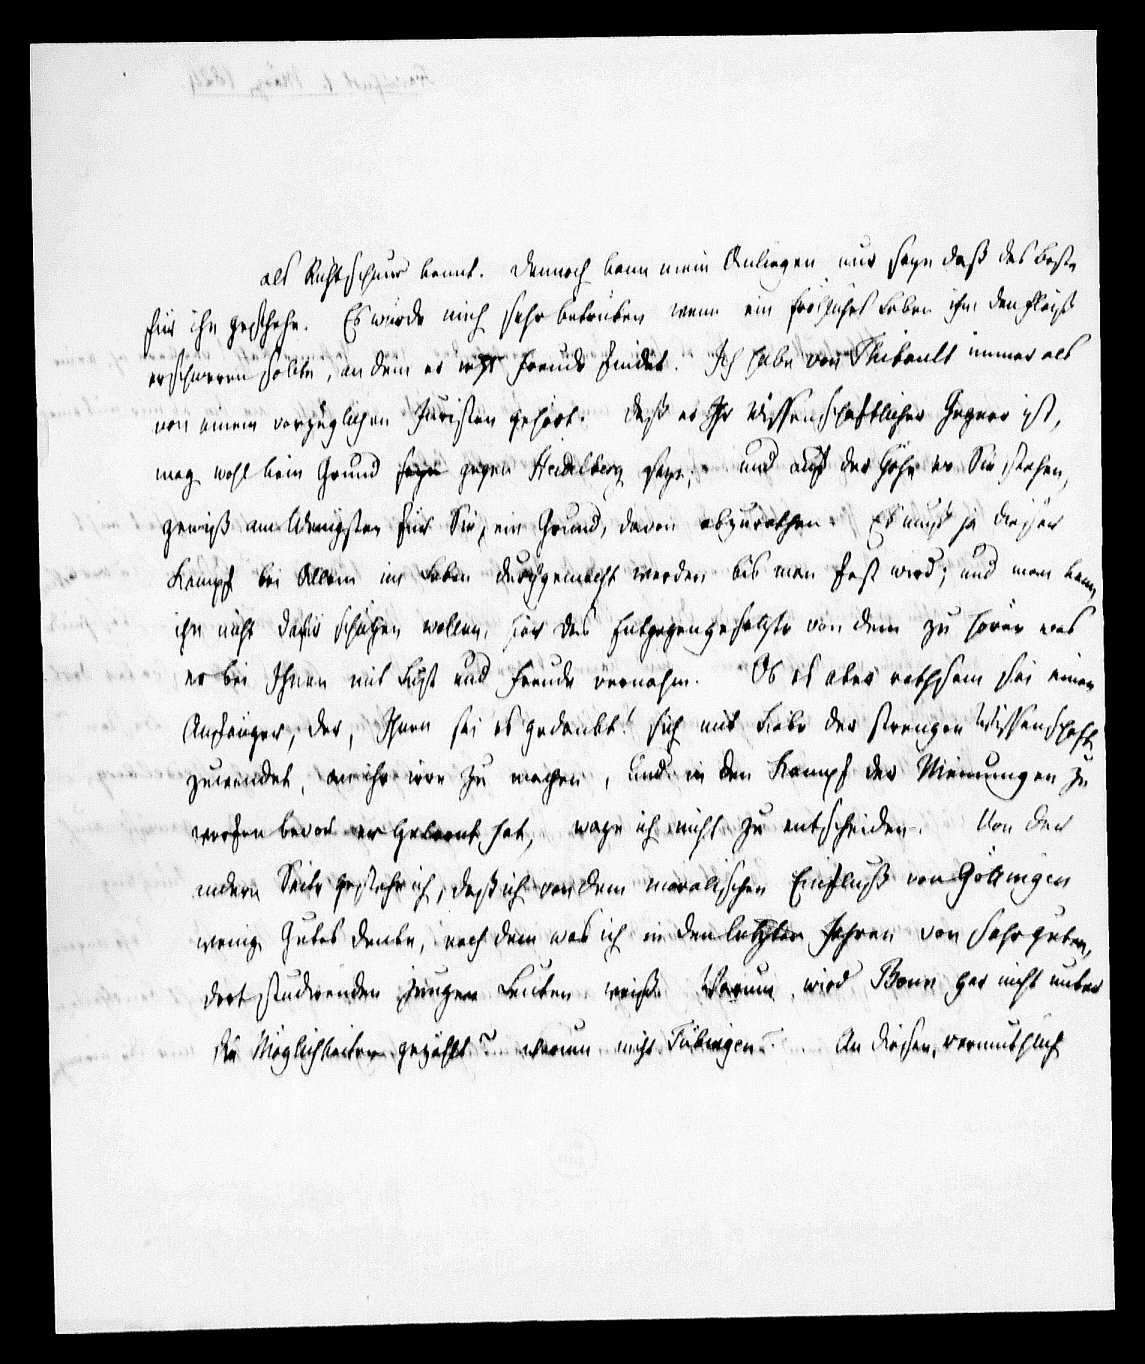 als Richtschnur kennt. Dennoch kann mein Anliegen nur seyn daß das Beste
für ihn geschehe. Es würde mich sehr betrüben wenn ein fröhliches Leben ihm den Fleiß
erschweren sollte, an dem er jetzt Freude findet. Ich habe von Thibault immer als
von einem vorzüglichen Juristen gehört. Daß er Ihr wissenschaftlicher Gegner ist,
mag wohl kein Grund gegen Heidelberg seyn; und auf der Höhe wo Sie stehen,
gewiß am Wenigsten für Sie, ein Grund, davon abzurathen. Es muß ja dieser
Kampf bei Allem im Leben durchgemacht werden bis man fest wird; und man kann
ihn nicht dafür schützen wollen, hier das Entgegengesetzte von dem zu hören was
er bei Ihnen mit Lust und Freude vernahm. Ob es aber rathsam sei einen
Anfänger, der, Ihnen sei es gedankt! sich mit Liebe der strengen Wissenschaft
zuwendet, an ihr irre zu machen, und in den Kampf der Meinungen zu
werfen bevor er gelernt hat, wage ich nicht zu entscheiden. Von der
andern Seite gestehe ich, daß ich von dem moralischen Einfluß von Göttingen
wenig Gutes denke, nach dem was ich in den letzten Jahren von sehr guten,
dort studirenden jungen Leuten weiß. Warum wird Bonn gar nicht unter
die Möglichkeiten gezählt? warum nicht Tübingen? An diesen, vermuthlich